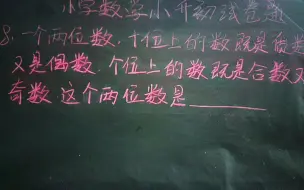 小学数学小升初试卷题
8. 一个两位数, 十位上的数既是质数
又是偶数, 个位上的数既是合数又
奇数, 这个两位数是